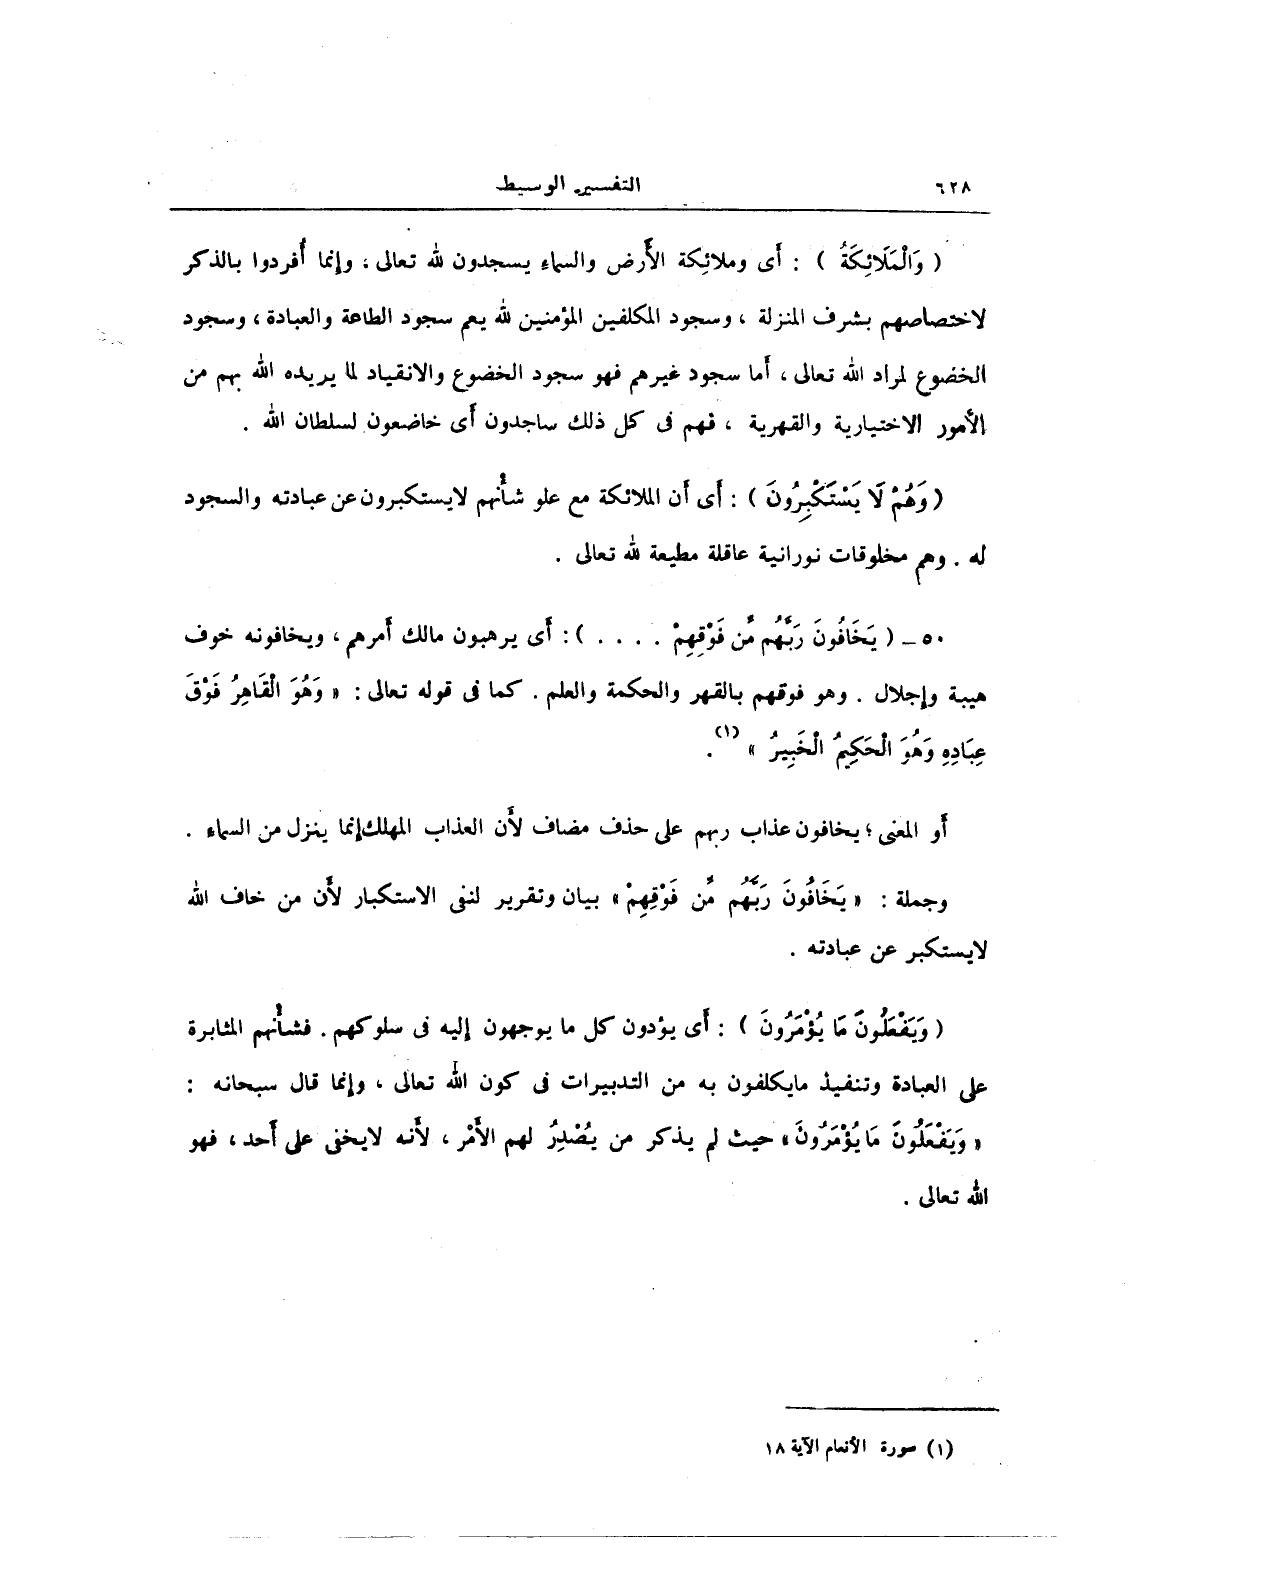 ٦٢٨ التفسير الوسيط
( وَالْمَلَائِكَةُ ) : أى وملائكة الأرض والسماء يسجدون لله تعالى ، وإنما أُفردوا بالذكر
لاختصاصهم بشرف المنزلة ، وسجود المكلفين المؤمنين لله يعم سجود الطاعة والعبادة ، وسجود
الخضوع لمراد الله تعالى ، أما سجود غيرهم فهو سجود الخضوع والانقياد لما يريده الله بهم من
الأمور الاختيارية والقهرية ، فهم فى كل ذلك ساجدون أى خاضعون لسلطان الله .
( وَهُمْ لَا يَسْتَكْبِرُونَ ) : أى أن الملائكة مع علو شأنهم لايستكبرون عن عبادته والسجود
له . وهم مخلوقات نورانية عاقلة مطيعة لله تعالى .
٥٠ ـ ( يَخَافُونَ رَبَّهُم مِّن فَوْقِهِمْ . . . . ) : أى يرهبون مالك أمرهم ، ويخافونه خوف
هيبة وإجلال . وهو فوقهم بالقهر والحكمة والعلم . كما فى قوله تعالى : « وَهُوَ الْقَاهِرُ فَوْقَ
عِبَادِهِ وَهُوَ الْحَكِيمُ الْخَبِيرُ » (١) .
أو المعنى ؛ يخافون عذاب ربهم على حذف مضاف لأن العذاب المهلك إنما ينزل من السماء .
وجملة : « يَخَافُونَ رَبَّهُم مِّن فَوْقِهِمْ » بيان وتقرير لنفى الاستكبار لأن من خاف الله
لايستكبر عن عبادته .
( وَيَفْعَلُونَ مَا يُؤْمَرُونَ ) : أى يؤدون كل ما يوجهون إليه فى سلوكهم . فشأنهم المثابرة
على العبادة وتنفيذ مايكلفون به من التدبيرات فى كون الله تعالى ، وإنما قال سبحانه :
« وَيَفْعَلُونَ مَا يُؤْمَرُونَ » حيث لم يذكر من يُصْدِرُ لهم الأَمْر ، لأنه لايخفى على أحد ، فهو
الله تعالى .
(١) سورة الأنعام الآية ١٨